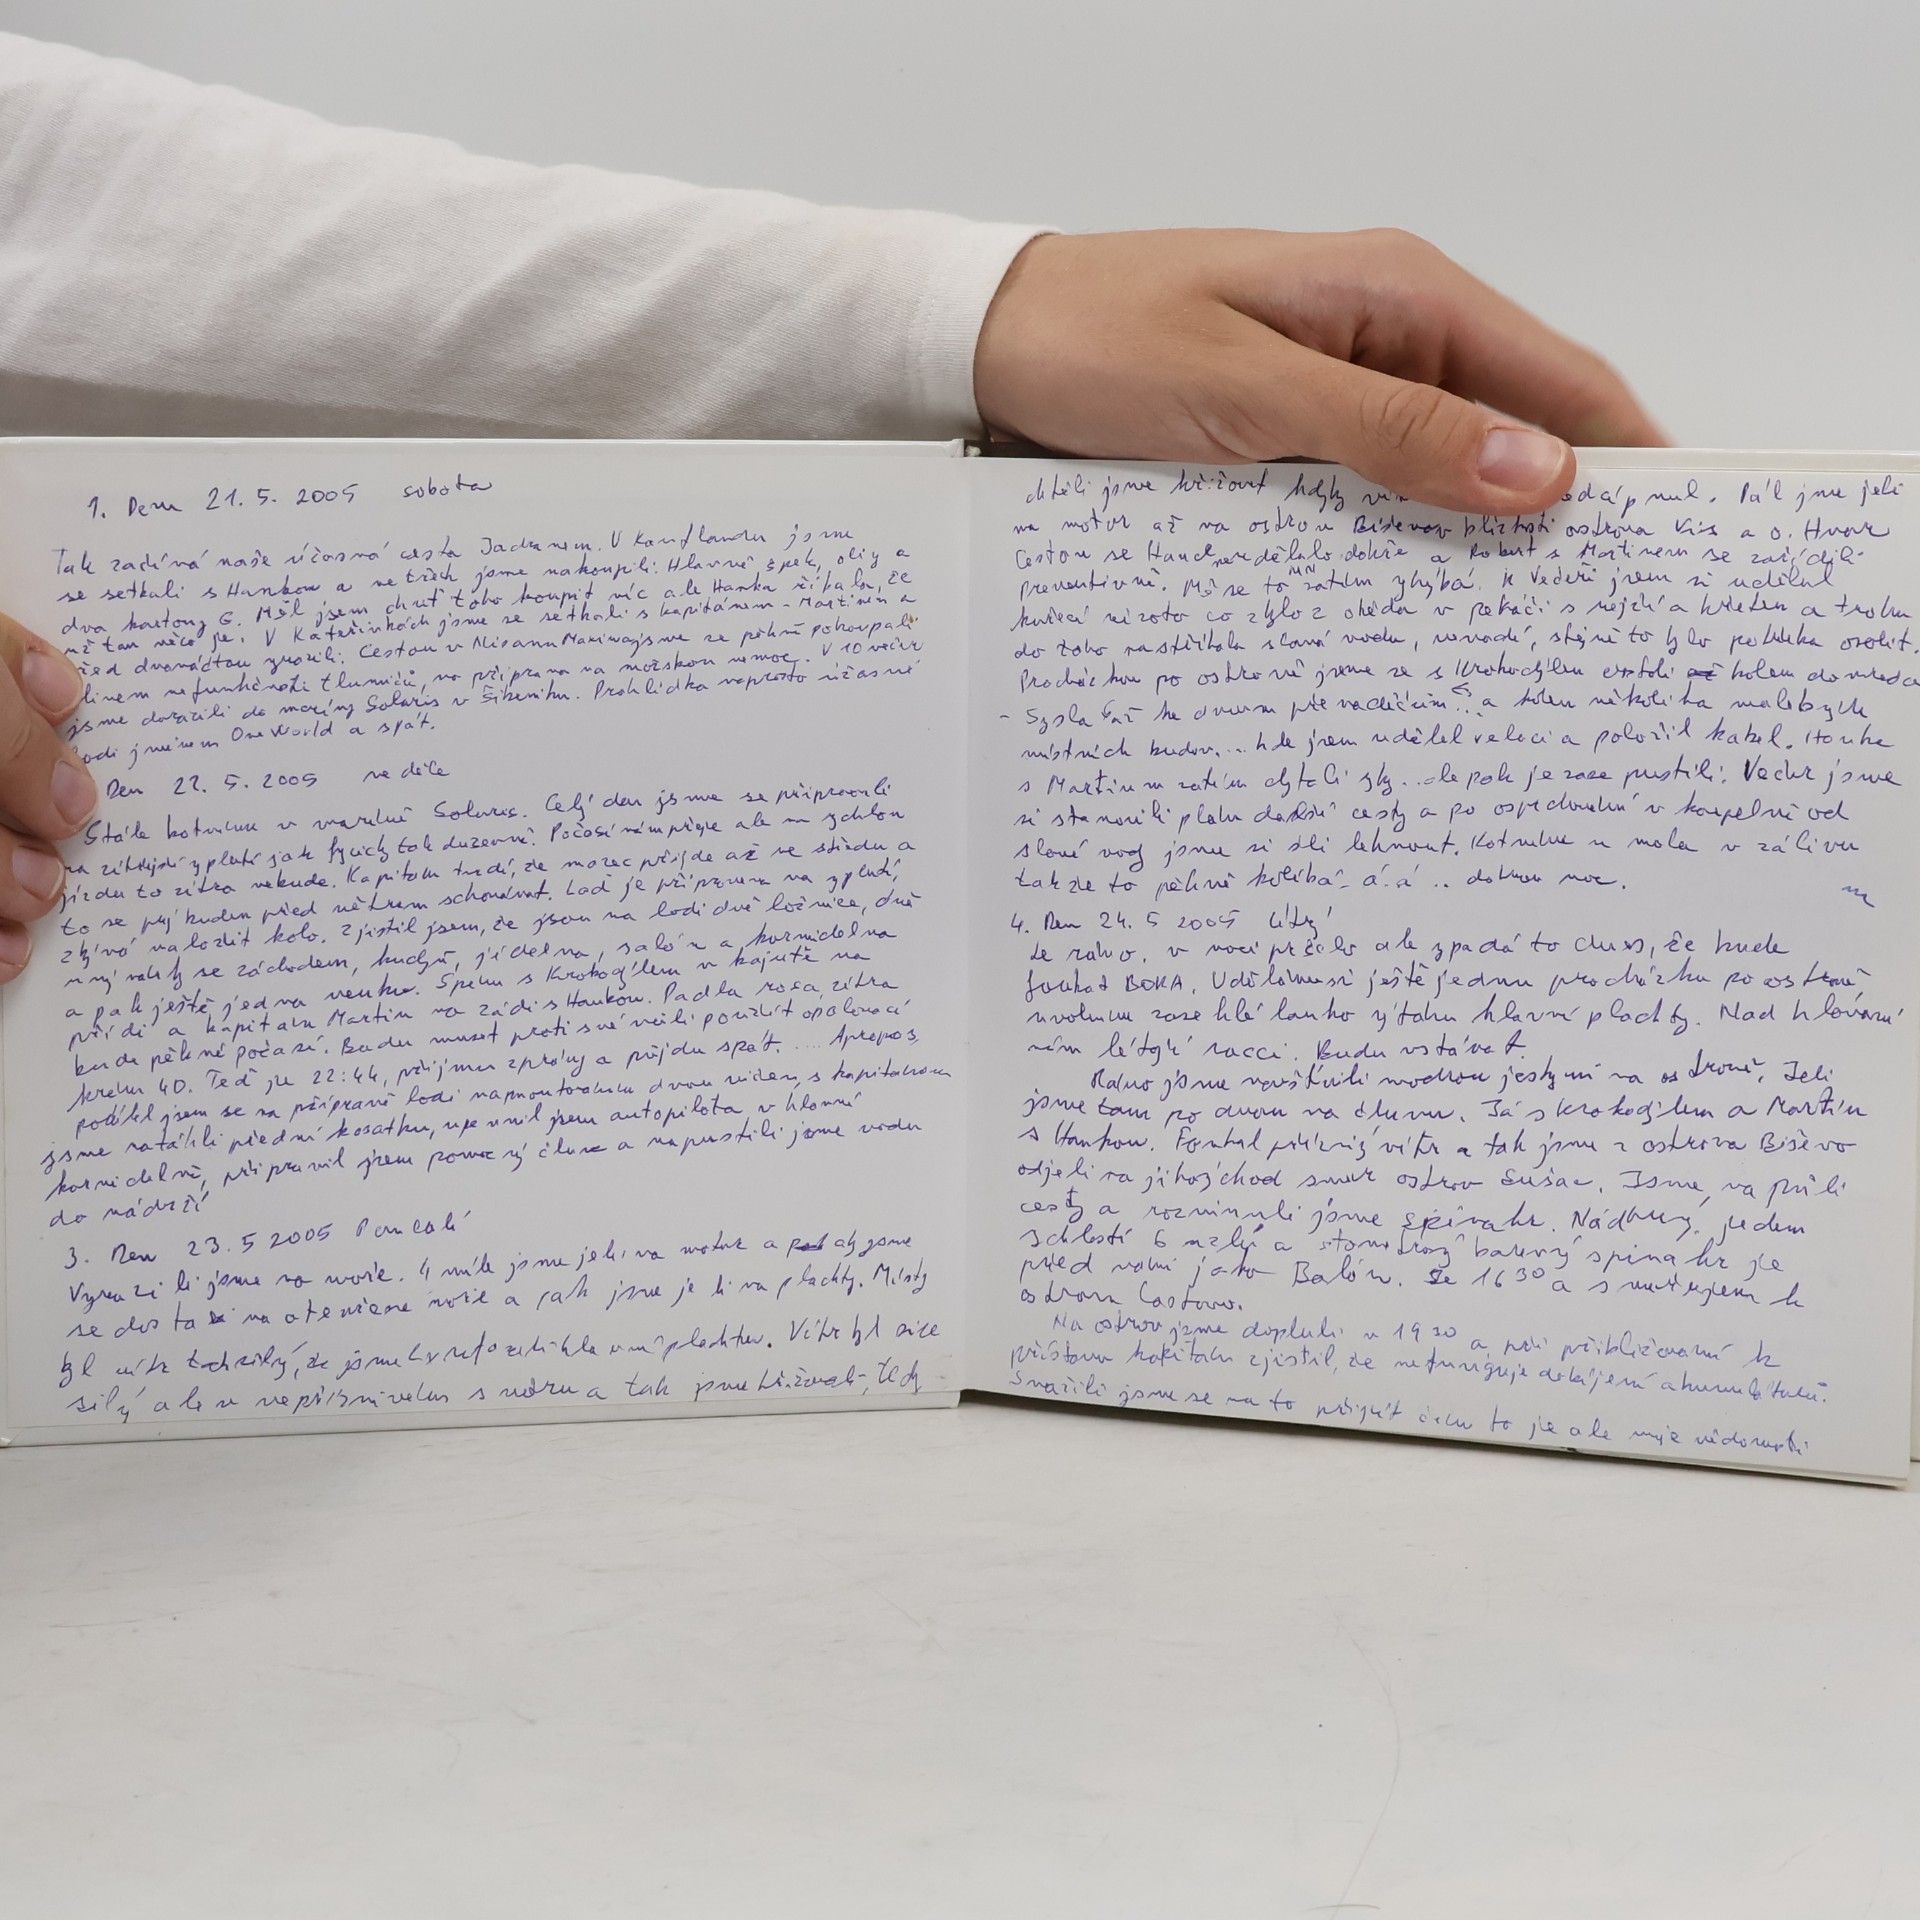 1. Den 21. 5. 2005 sobota
Tak začíná naše úžasná cesta Jadranem. V Kauflandu jsme
se setkali s Hankou a ve třech jsme nakoupili. Hlavně špek, olivy a
dva kartony G. Měl jsem chuť toho koupit víc ale Hanka říkala, že
už tam něco je. V Kateřinkách jsme se setkali s kapitánem - Martinem a
před dvanáctou vyrazili. Cestou v Nissanu Maxima jsme se pěkně pohoupali
vlivem nefunkčnosti tlumičů, no příprava na mořskou nemoc. V 10 večer
jsme dorazili do maríny Solaris v Šibeniku. Prohlídka naprosto úžasné
lodi jménem One World a spát.
Den 22. 5. 2005 neděle
Stále kotvíme v maríně Solaris. Celý den jsme se připravovali
na zítřejší vyplutí jak fyzicky tak duševně. Počasí nám přeje ale na rychlou
jízdu to zítra nebude. Kapitán tvrdí, že mazec přijde až ve středu a
to se prý budem před větrem schovávat. Loď je připravena na vyplutí,
zbývá naložit kolo. Zjistil jsem, že jsou na lodi dvě ložnice, dvě
se záchodem, kuchyň, jídelna, salón a kormidelna
a pak ještě jedna venku. Spíme s Krokodýlem v kajutě na
přídi a kapitán Martin na zádi s Hankou. Padla rosa, zítra
bude pěkné počasí. Budu muset proti své vůli použít opalovací
krém 40. Teď je 22:44, přijmu zprávy a půjdu spát. .... Apropos,
podílel jsem se na přípravě lodi namontováním dvou s kapitánem
jsme natáhli přední kosatku, upevnil jsem autopilota v hlavní
kormidelně, připravil jsem pomocný člun a napustili jsme vodu
do nádrží
3. Den 23. 5 2005 Pondělí
Vyrazili jsme na moře. 4 míle jsme jeli na motor a abysme
se dostali na otevřené moře a pak jsme jeli na plachty. Místy
byl vítr tak silný, že jsme plachtu. Vítr byl sice
silný ale v nepříznivém směru a tak jsme křižovali, tedy
chtěli jsme křižovat kdyby . Dál jsme jeli
na motor až na ostrov Biševo v blízkosti ostrova Vis a o. Hvar
Cestou se Hance nedělalo dobře a Robert s Martinem se zašídili
preventivně. Mě se to zatím vyhýbá. K večeři jsem si udělal
kuřecí rizoto co zbylo z oběda v pekáči s rejží a kuřetem a trochu
do toho nastříkala slaná voda, nevadí, stejně to bylo potřeba osolit.
Procházkou po ostrově jsme se s Krokodýlem kolem
- ke dvoum převaděčům... a kolem několika malebných
místních budov... kde jsem udělal veleci a položil kabel. Honke
s Martinem zatím chytali ryby.. ale pak je zase pustili. Večer jsme
si stanovili plán další cesty a po v koupelně od
slané vody jsme si šli lehnout. Kotvíme u mola v zálivu
takže to pěkně kolíbá - á. á .. dobrou noc.
4. Den 24. 5 2005 úterý
Je ráno, v noci pršelo ale vypadá to dnes, že bude
foukat BORA. Uděláme si ještě jednu procházku po ostrově
uvolníme zaseklé lanko výtahu hlavní plachty. Nad hlavami
nám létají racci. Budu vstávat.
Ráno jsme navštívili modrou jeskyni na ostrově. Jeli
jsme tam po dvou na člunu. Já s Krokodýlem a Martin
s Hankou. Foukal příznivý vítr a tak jsme z ostrova Biševo
odjeli na jihovýchod směr ostrov Sušac. Jsme na půli
cesty a rozvinuli jsme spinakr. Nádhery, jedem
rychlostí 6 uzlů a barevný spinakr je
před námi jako Balón. Je 16 30 a směřujem k
ostrovu Lastovo.
Na ostrov jsme dopluli v 19 30 a při přibližování k
přístavu kapitán zjistil, že nefunguje dobíjení akumulátorů.
Snažili jsme se na to přijít čím to je ale moje vědomosti